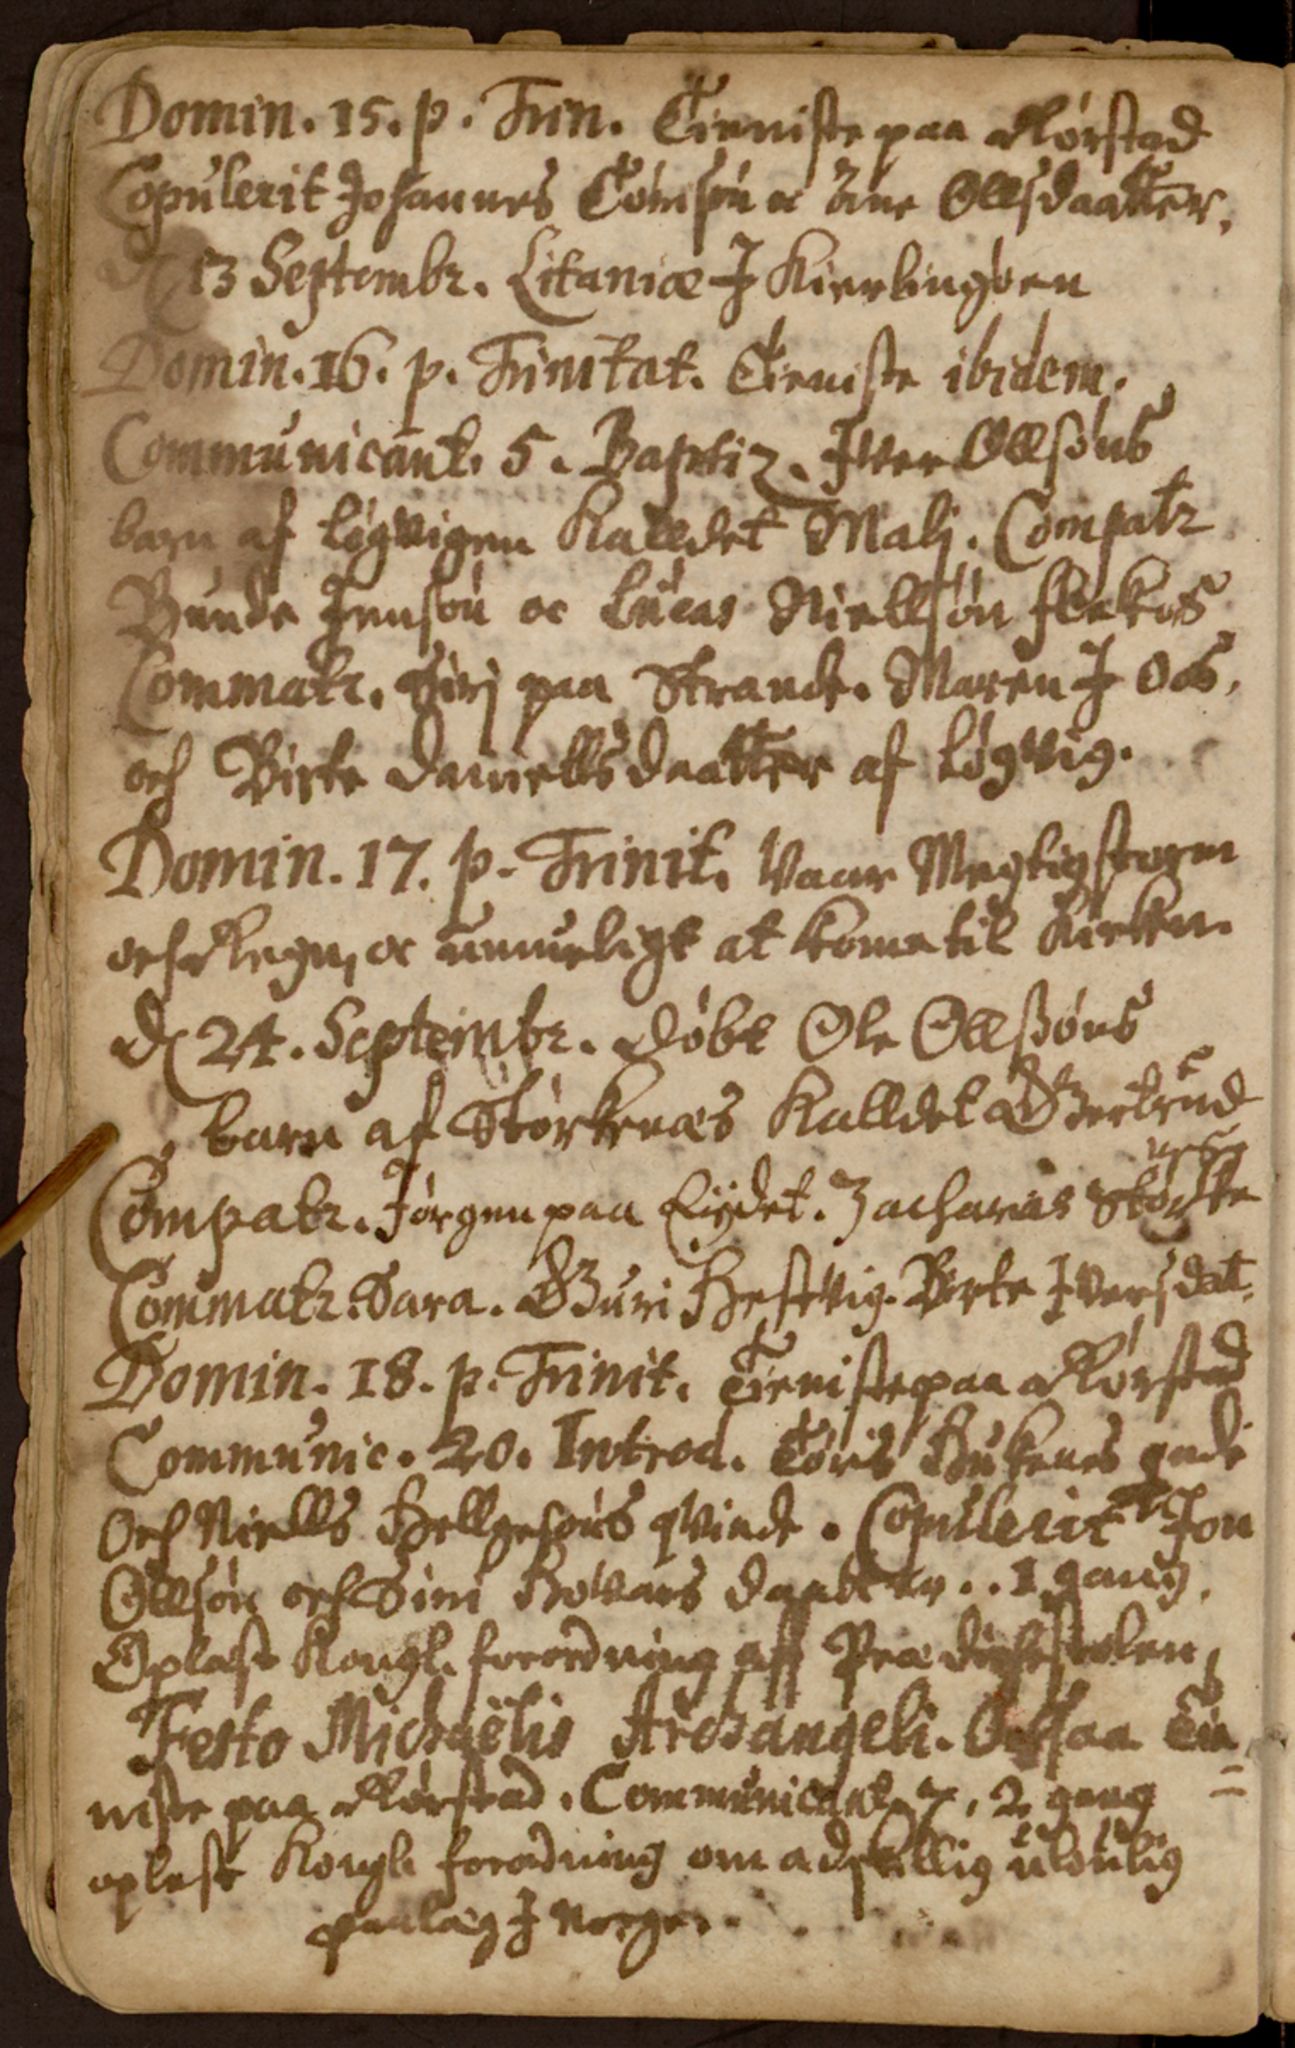 Domin. 15. p. Trin. Tieniste paa Rørstad
Copulerit Johannes Tømsøn oc Ane Ollsdaatter.
d 13 Septembr. Litaniæ I Kierlingøen
Domin. 16. p. Trinitat. Tieniste ibidem.
Communicant. 5. Baptiz. Iver Ollsøns
barn af løgvigen Kalldet Malj. Compatr
Bunde Jensøn oc Lucas Niellsøn
Commatr. Siri paa Strande. Maren I Oos,
och Birte Daniellsdaatter af løgvig.
Domin. 17. p. Trinit. Vaar Megtig storm
och Regn, oc umueligt at kome til Kirken
d 24. Septembr. Døbt Ole Ollssøns
barn af Størkenæs Kalldet Giertrud
Compatr. Jørgen paa Eijdet. Zacharias Størke
næs
Commatr. Sara. Guri Hestvig. Birte Iversdat.
Domin. 18. p. Trinit. Tieniste paa Rørstad
Communic. 20. Introd. Tøris
Och Niells Hellgesøns qvinde. Copulerit Jon
Ollsøn och Siri daatter.. 1 gang.
Oplæst Kongl. forordning aff Prædichestolen
Festo Michaëlis Archangeli. Ochsaa Tie
niste paa Rørstad. Communicant. 7. 2 gang
oplæst Kongl. forordning om adskillig ulovlig
paalæg I Norge.